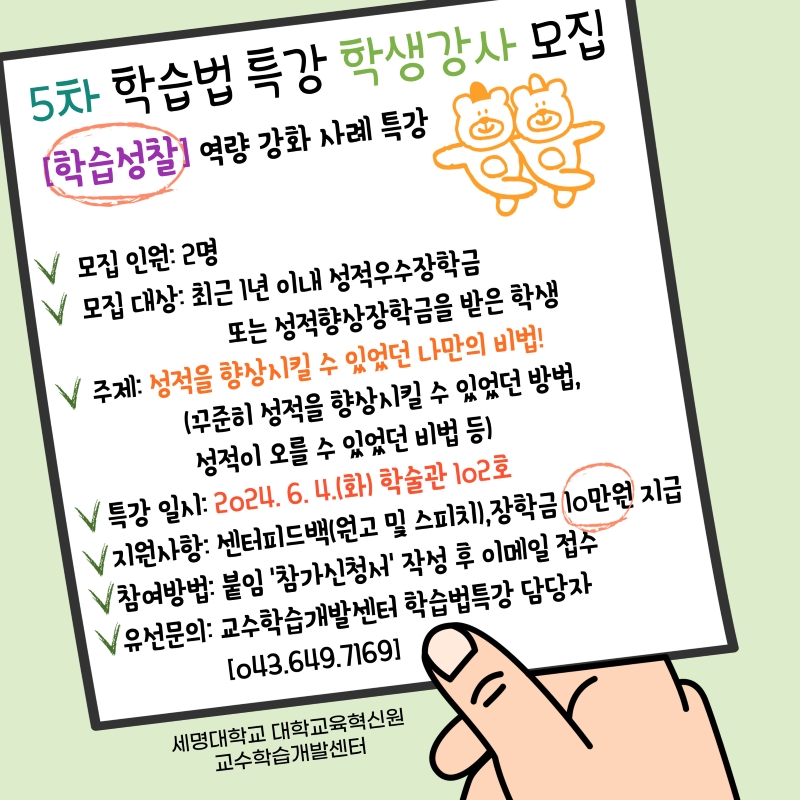 5차 학습법 특강 학생강사 모집
[학습성찰] 역량 강화 사례 특강
모집 인원: 2명
모집 대상: 최근 1년 이내 성적우수장학금
또는 성적향상장학금을 받은 학생
주제: 성적을 향상시킬 수 있었던 나만의 비법!
(꾸준히 성적을 향상시킬 수 있었던 방법,
성적이 오를 수 있었던 비법 등)
특강 일시: 2024. 6. 4.(화) 학술관 102호
지원사항: 센터피드백(원고 및 스피치),장학금 10만원 지급
참여방법: 붙임 '참가신청서' 작성 후 이메일 접수
유선문의: 교수학습개발센터 학습법특강 담당자
[043.649.7169]
세명대학교 대학교육혁신원
교수학습개발센터